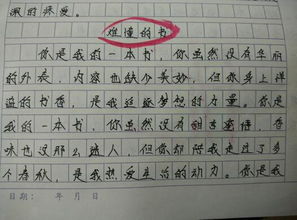 溺的疼爱。
难懂的书
你是我的一本书，你虽然没有华丽
的外表，内容也缺个美妙，但你身上洋
溢的书香，是我延续梦想的力量。你是
我的一本书，你虽然没有甜言蜜语，香
味也没那么迷人，但你却陪我走过了多
个春秋，是我热爱生活的动力。你是我
日期： 年 月 日